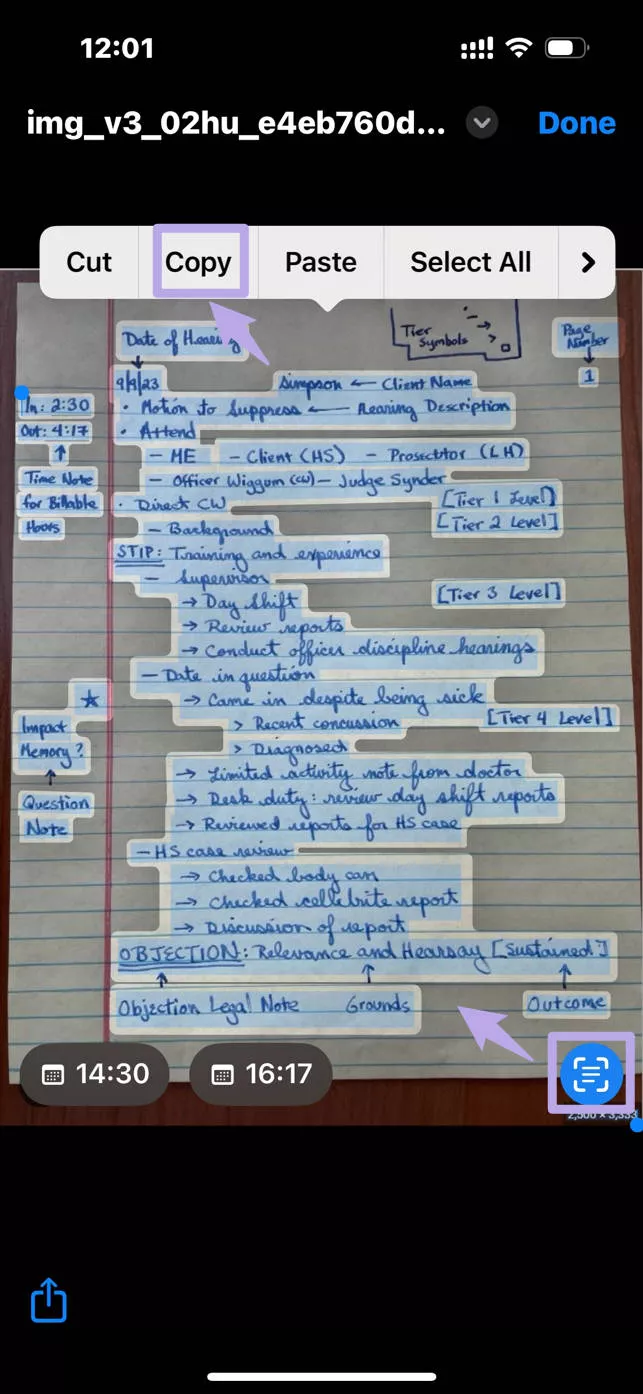 12:01
img_v3_02hu_e4eb760d... Done
Cut Copy Paste Select All
Date of Hearing
Tier Symbols
Page Number
9/9/23 Simpson ← Client Name 1
In: 2:30 • Motion to Suppress ← Hearing Description
Out: 4:17 • Attend
– ME – Client (HS) – Prosecutor (LH)
Time Note – Officer Wiggum (CW) – Judge Synder
for Billable • Direct CW [Tier 1 Level]
Hours – Background [Tier 2 Level]
STIP: Training and experience
– Supervisor
→ Day Shift [Tier 3 Level]
→ Review reports
→ Conduct officer discipline hearings
– Date in question
★ → Came in despite being sick
Impact > Recent concussion [Tier 4 Level]
Memory? > Diagnosed
→ Limited activity note from doctor
Question → Desk duty: review day shift reports
Note → Reviewed reports for HS case
– HS case review
→ Checked body cam
→ Checked cellebrite report
→ Discussion of report
OBJECTION: Relevance and Hearsay [Sustained]
Objection Legal Note Grounds Outcome
14:30 16:17
2,500 × 3,333